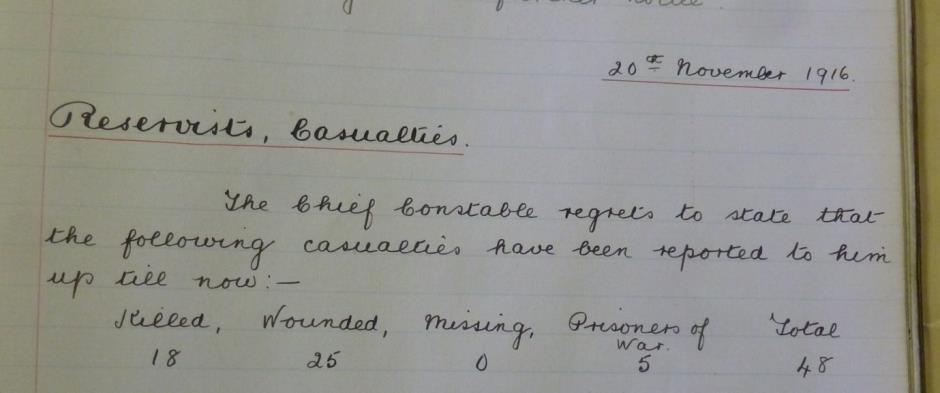 20th November 1916.
Reservists, Casualties.
The Chief Constable regrets to state that
the following casualties have been reported to him
up till now:—
Killed, Wounded, Missing, Prisoners of War. Total
18 25 0 5 48